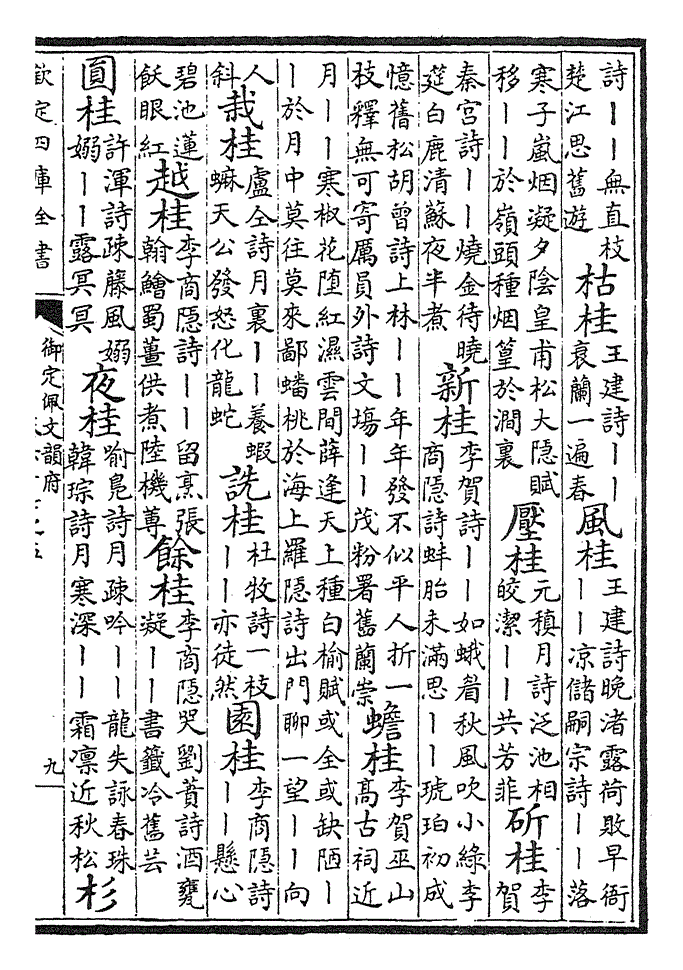 詩丨丨無直枝
楚江思舊遊
枯桂
王建詩丨丨
衰蘭一遍春
風桂
王建詩晚渚露荷敗早衙
丨丨凉儲嗣宗詩丨丨落
寒子嵐烟凝夕陰皇甫松大隱賦
移丨丨於嶺頭種烟篁於澗裏
壓桂
元稹月詩泛池相
皎潔丨丨共芳菲
斫桂
李
賀
秦宮詩丨丨燒金待曉
筳白鹿清蘇夜半煮
新桂
李賀詩丨丨如蛾眉秋風吹小綠李
商隱詩蚌胎未滿思丨丨琥珀初成
憶舊松胡曾詩上林丨丨年年發不似平人折一
枝釋無可寄厲員外詩文塲丨丨茂粉署舊蘭崇
蟾桂
李賀巫山
髙古祠近
月丨丨寒椒花堕紅濕雲間薛逢天上種白榆賦或全或缺陋丨
丨於月中莫往莫來鄙蟠桃於海上羅隱詩出門聊一望丨丨向
人
斜
栽桂
盧仝詩月裏丨丨養蝦
蟆天公發怒化龍蛇
詵桂
杜牧詩一枝
丨丨亦徒然
園桂
李商隱詩
丨丨懸心
碧池蓮
飫眼紅
越桂
李商隱詩丨丨留烹張
翰鱠蜀薑供煮陸機蓴
餘桂
李商隱哭劉蕡詩酒甕
凝丨丨書籤冷舊芸
圓桂
許渾詩疎藤風嫋
嫋丨丨露冥冥
夜桂
喻鳧詩月疎吟丨丨龍失詠春珠
韓琮詩月寒深丨丨霜凛近秋松
杉
欽定四庫全書
御定佩文韻府
九